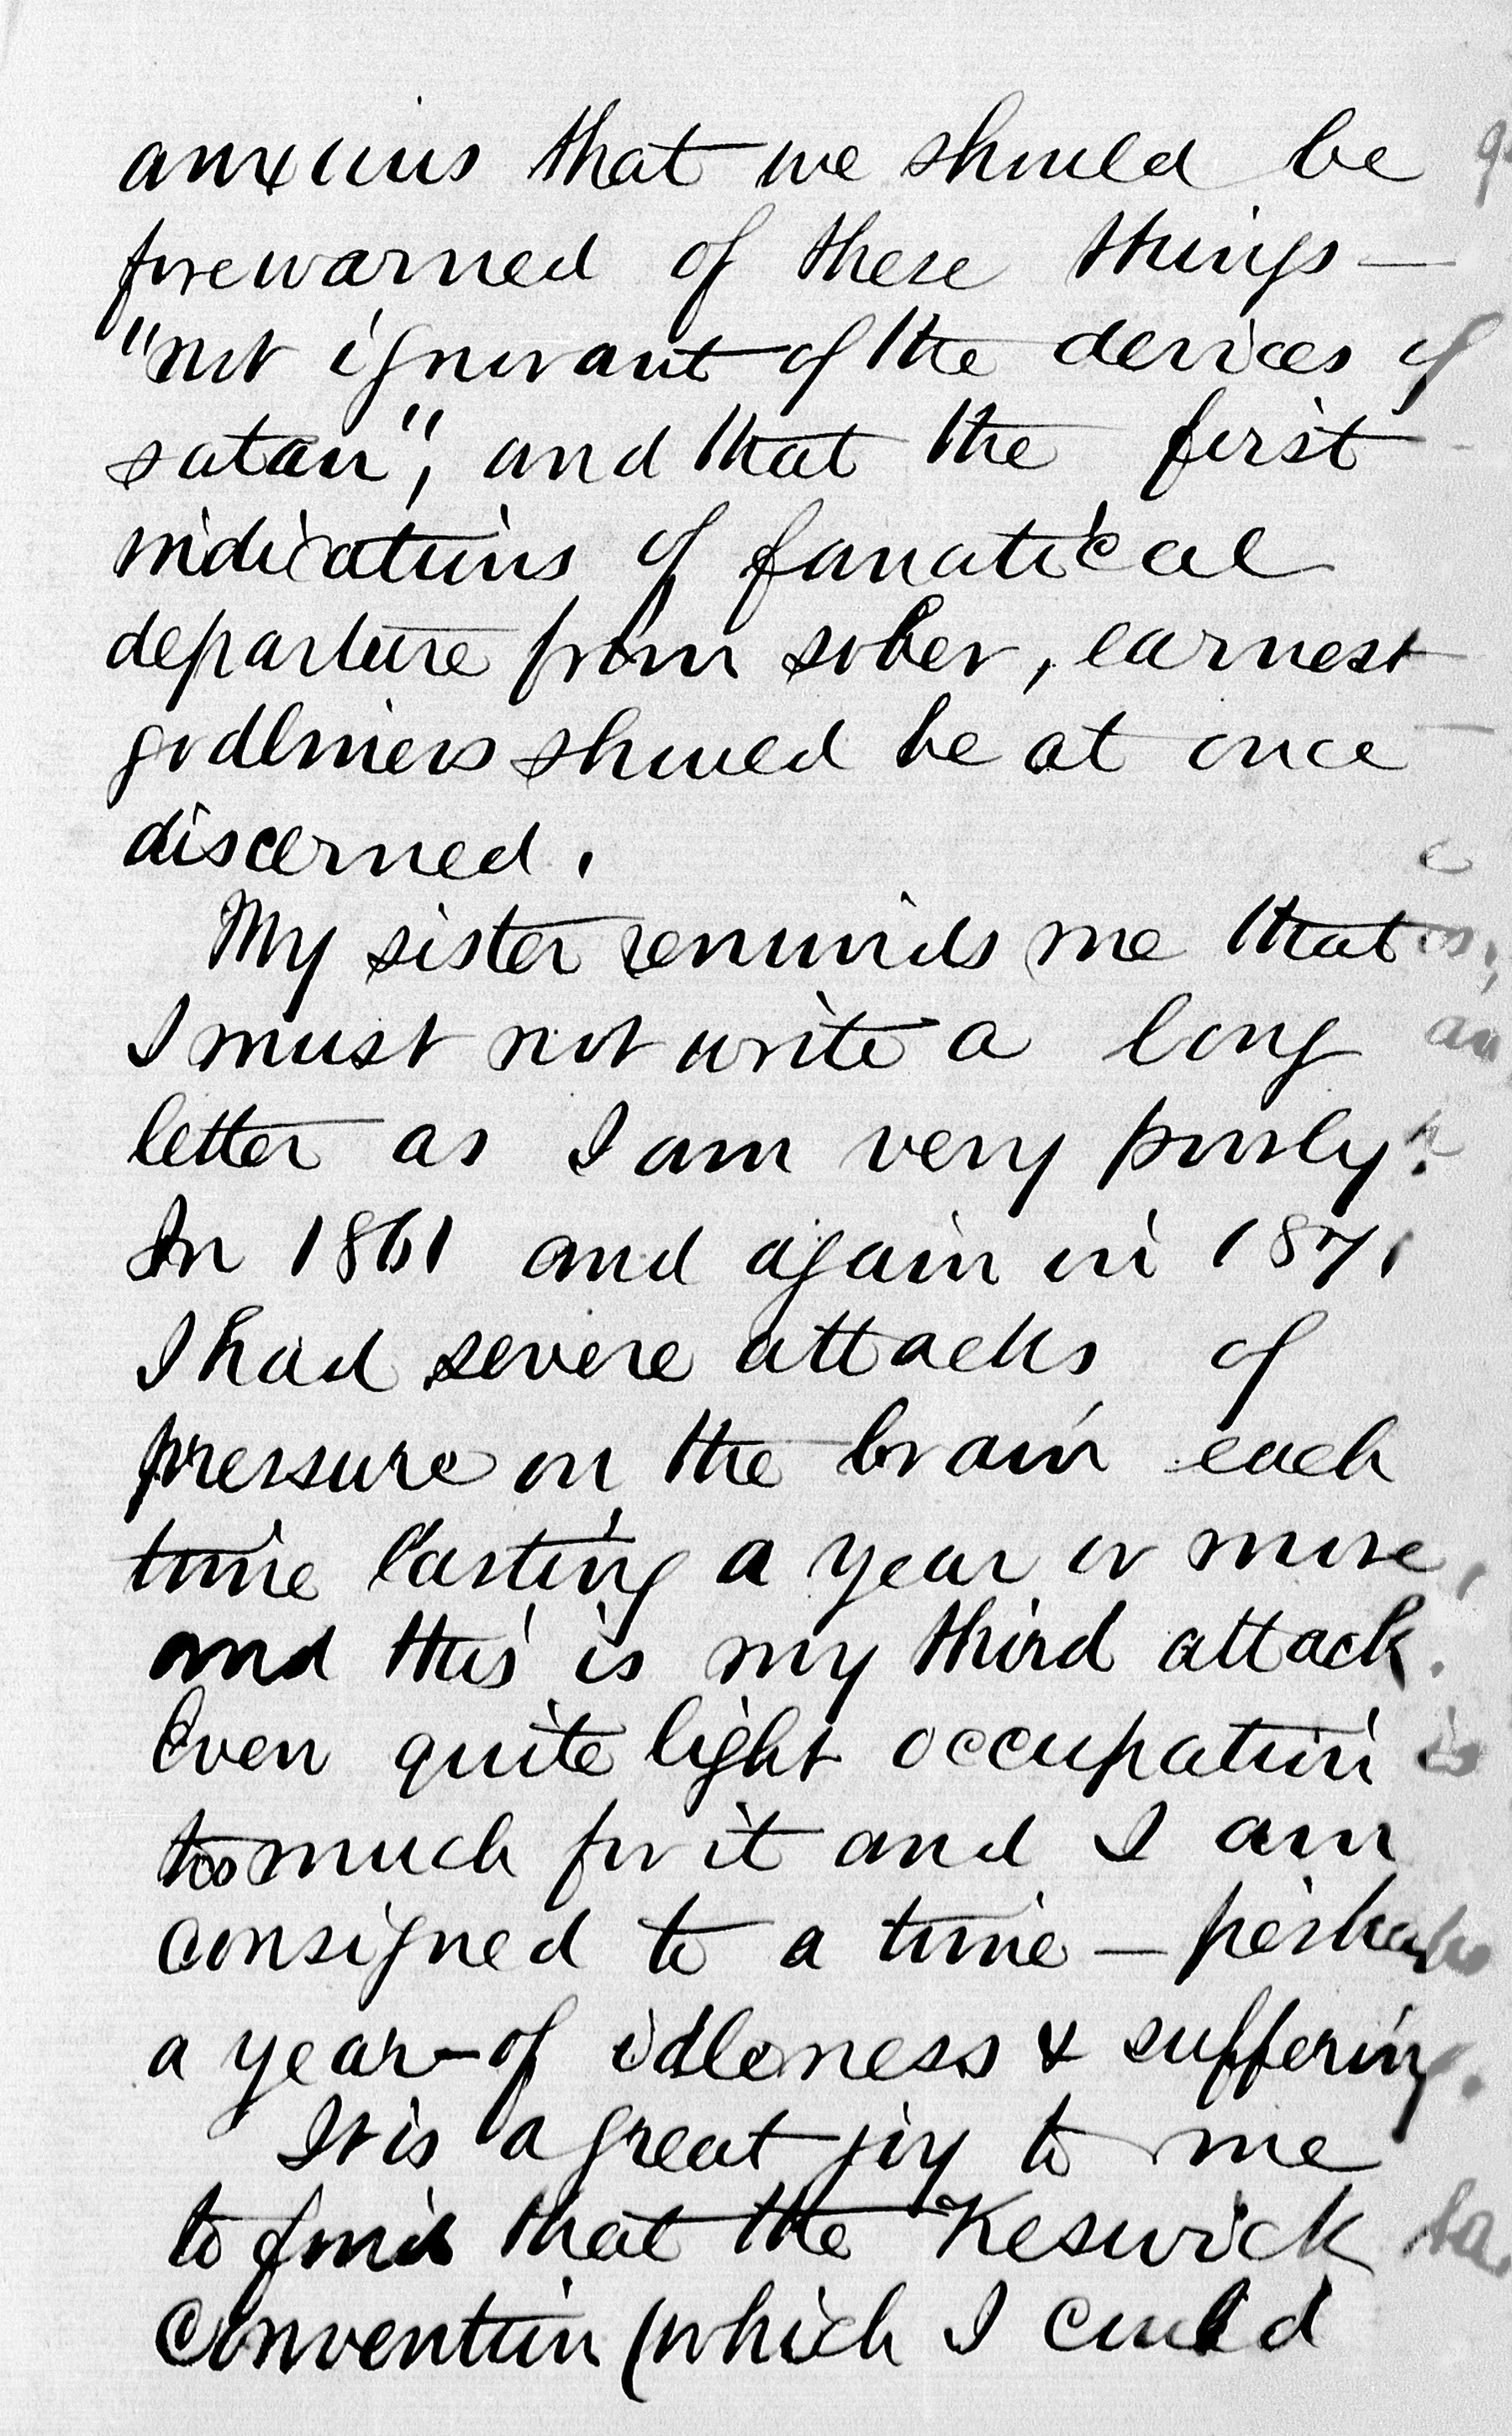 anxious that we should be
forewarned of these things—
"not ignorant of the devices of
satan", and that the first
indications of fanatical
departure from sober, earnest
godliness should be at once
discerned.
My sister reminds me that
I must not write a long
letter as I am very poorly.
In 1861 and again in 1871
I had severe attacks of
pressure on the brain each
time lasting a year or more,
and this is my third attack.
Even quite light occupation is
too much for it and I am
consigned to a time — perhaps
a year — of idleness & suffering.
It is a great joy to me
to find that the Keswick
Convention (which I could